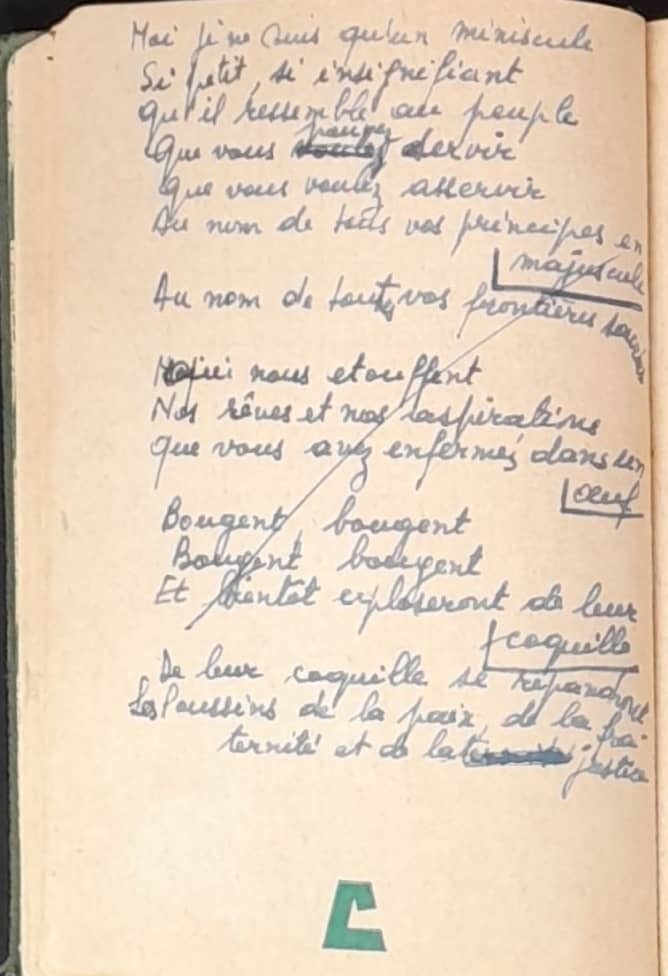 Moi je ne suis qu'un miniscule
Si petit, si insignifiant
qu'il ressemble au peuple
Que vous pouvez servir
que vous voulez asservir
Au nom de touts vos principes en
majuscule
Au nom de toutes vos frontières
qui nous etouffent
Nos rêves et nos aspirations
que vous avez enfermés dans un
œuf
Bougent, bougent
Bougent bougent
Et bientôt exploseront de leur
coquille
De leur coquille se répandront
Les Poussins de la paix, de la fra-
ternité et de la justice
C